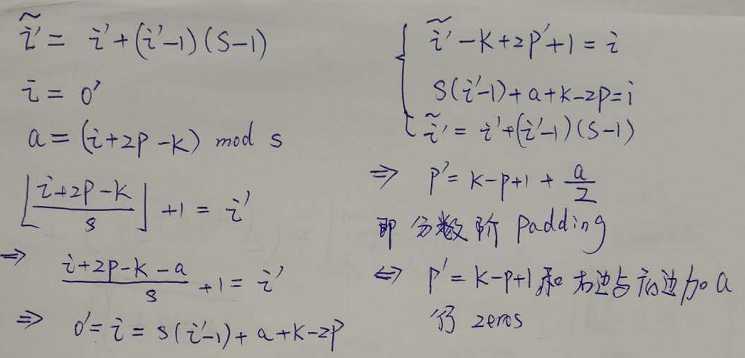 ĩ' = i' + (i'-1)(S-1)
i = o'
a = (i+2p-k) mod s
⌊(i+2p-k)/s⌋ + 1 = i'
⇒ (i+2p-k-a)/s + 1 = i'
⇒ o' = i = s(i'-1) + a + k - 2p
ĩ' - k + 2p' + 1 = i
S(i'-1) + a + k - 2p = i
ĩ' = i' + (i'-1)(S-1)
⇒ p' = k-p+1 + a/2
即 分数阶 padding
⇔ p' = k-p+1 和 右边与 边加 a
zeros